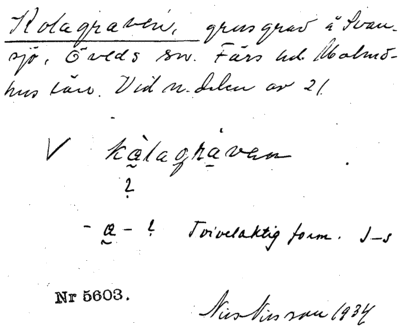 Kolagraven, grusgrav å Svan-
sjö, Öveds sn. Färs hd. Malmö-
hus län. Vid n. delen av 21.
V kàlagràven
?
- a - ? Tvivelaktig form. J-s
Nr 5603.
Nils Nilsson 1934